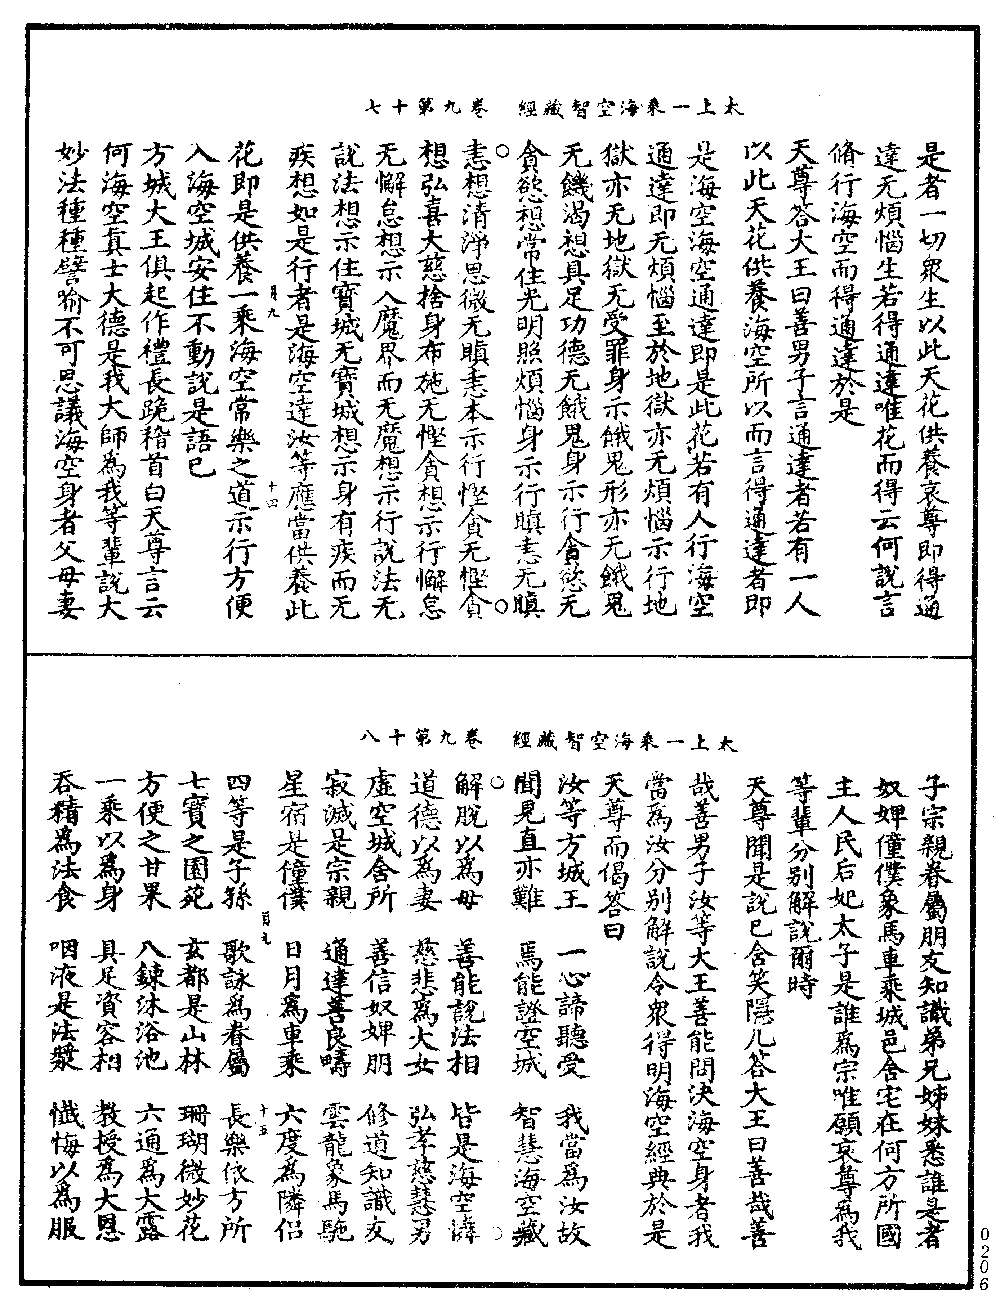 太上一乗海空智藏經　卷九第十七
是者一切衆生以此天花供養哀尊即得通
達无煩惱生若得通達唯花而得云何說言
脩行海空而得通達於是
天尊答大王曰善男子言通達者若有一人
以此天花供養海空所以而言得通達者即
是海空海空通達即是此花若有人行海空
通達即无煩惱至於地獄亦无煩惱示行地
獄亦无地獄无受罪身示餓鬼形亦无餓鬼
无饑渴想具足功德无餓鬼身示行貪慾无
貪慾想常住光明照煩惱身示行瞋恚无瞋
恚想清淨思微无瞋恚本示行慳貪无慳貪
想弘喜大慈捨身布施无慳貪想示行懈怠
无懈怠想示入魔界而无魔想示行說法无
說法想示住寶城无寶城想示身有疾而无
疾想如是行者是海空達汝等應當供養此
花即是供養一乘海空常樂之道示行方便
入海空城安住不動說是語已
方城大王俱起作禮長跪稽首白天尊言云
何海空真士大德是我大師為我等輩說大
妙法種種譬喻不可思議海空身者父母妻
月九
十四
太上一乗海空智藏經　卷九第十八
子宗親眷屬朋友知識弟兄姊妹悉誰是者
奴婢僮僕象馬車乘城邑舍宅在何方所國
主人民后妃太子是誰為宗唯願哀尊為我
等輩分別解說爾時
天尊聞是說已含笑隱几答大王曰善哉善
哉善男子汝等大王善能問決海空身者我
當為汝分別解說令衆得明海空經典於是
天尊而偈答曰
汝等方城王　一心諦聽受　我當為汝故
聞見直亦難　焉能證空城　智慧海空藏
解脫以為母　善能說法相　皆是海空濟
道德以為妻　慈悲為大女　弘孝慈慧男
虛空城舍所　善信奴婢朋　修道知識友
寂滅是宗親　通達善良疇　雲龍象馬馳
星宿是僮僕　日月為車乘　六度為隣侶
四等是子孫　歌詠為眷屬　長樂依方所
七寶之園苑　玄都是山林　珊瑚微妙花
方便之甘果　八鍊沐浴池　六通為大露
一乘以為身　具足資容相　教授為大恩
吞精為法食　咽液是法漿　懺悔以為服
月九
十五
0206